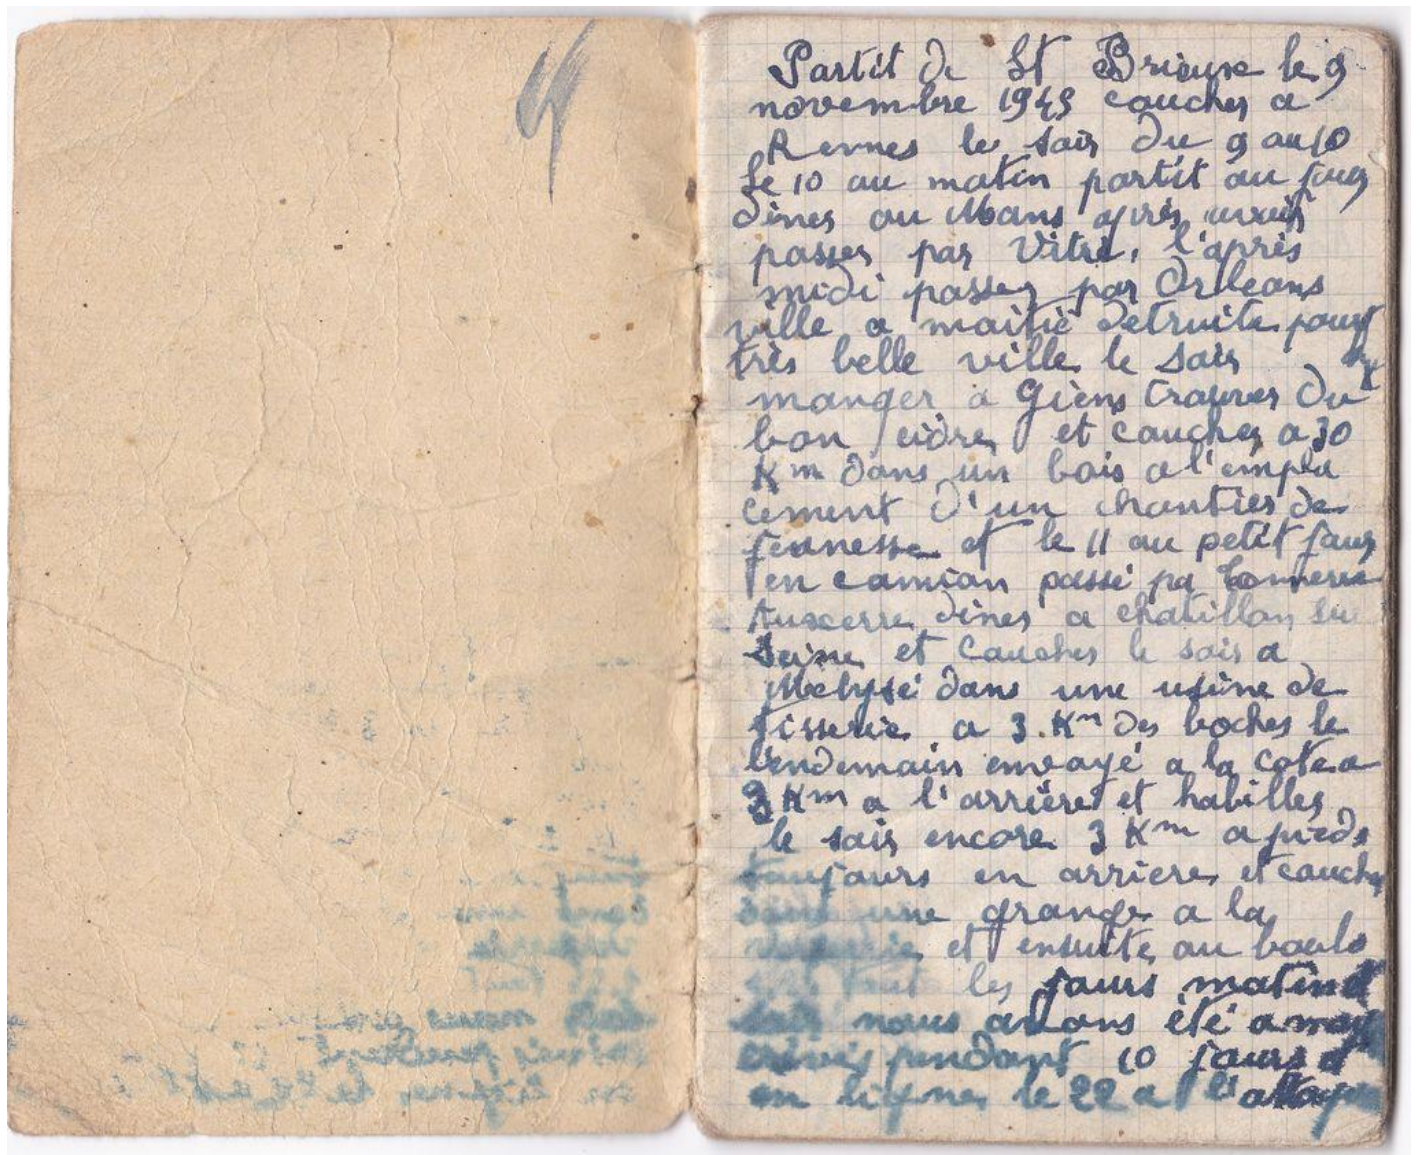 4
Partit de St Brieuxe le 9
novembre 1945 coucher a
Rennes le soir du 9 au 10
Le 10 au matin partit au jour
diner au Mans après avoir
passer par Vitré, l'après
midi passer par Orleans
ville a moitié détruite pourt
très belle ville le soir
manger a Giens trouver du
bon cidre et coucher a 30
Km dans un bois a l'empla
cement d'un chantier de
jeunesse et le 11 au petit jour
en camion passé pa Tonnerre
Auxerre diner a chatillon su
Seine et coucher le soir a
Mélysé dans une usine de
tisserie a 3 Km des boches le
lendemain envoyé a la cote a
3 Km a l'arrière et habiller
le soir encore 3 Km a pieds
toujours en arriere et coucher
dans une grange a la
et ensuite au boulo
tout les jours matin et
soir nous avons été a
pendant 10 jours et
en lignes le 22 a l'attaque